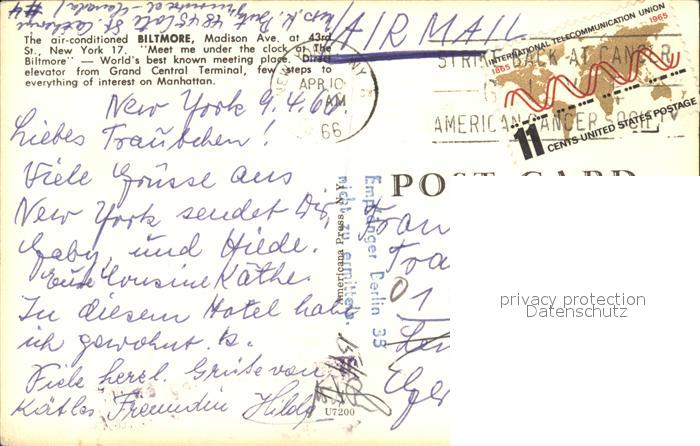 #4
AIR MAIL
The air-conditioned BILTMORE, Madison Ave. at 43rd
St., New York 17. "Meet me under the clock at The
Biltmore" — World's best known meeting place. Direct
elevator from Grand Central Terminal, few steps to
everything of interest on Manhattan.
NY
APR 10
AM
66
STRIKE BACK AT CANCER
AMERICAN CANCER SOCIETY
INTERNATIONAL TELECOMMUNICATION UNION
1865 1965
11 CENTS UNITED STATES POSTAGE
New York 9.4.66
Liebes Traubchen!
Viele Grüsse aus
New York sendet Dir,
Gaby, und Hilde.
Eure Cousine Käthe.
In diesem Hotel habe
ich gewohnt. K.
Viele herzl. Grüße von
Käthes Freundin Hilde
POST CARD
Americana Press N.Y.
U7200
Empfänger Berlin 33
nicht zu ermitteln.
Frau
Tra
1
privacy protection
Datenschutz